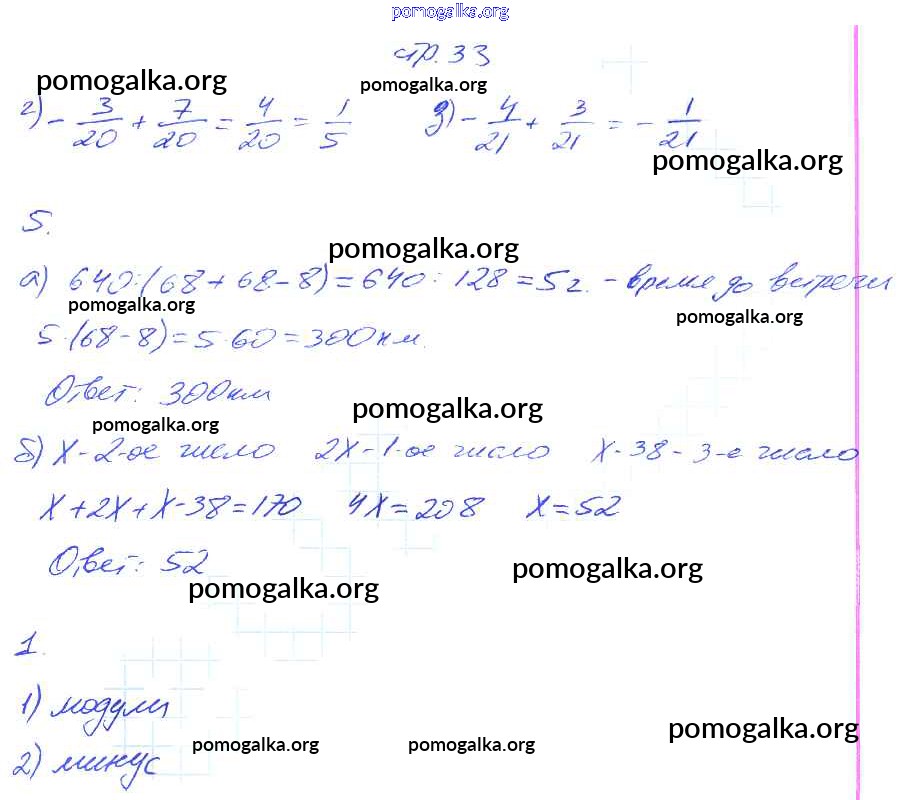 pomogalka.org
стр. 33
pomogalka.org pomogalka.org
г) - 3/20 + 7/20 = 4/20 = 1/5 д) - 4/21 + 3/21 = - 1/21
pomogalka.org
5.
pomogalka.org
а) 640:(68 + 68 - 8) = 640 : 128 = 5 г. - время до встречи
pomogalka.org pomogalka.org
5·(68 - 8) = 5·60 = 300 км.
Ответ: 300 км
pomogalka.org
pomogalka.org
б) х - 2-ое число 2х - 1-ое число х - 38 - 3-е число
х + 2х + х - 38 = 170 4х = 208 х = 52
Ответ: 52
pomogalka.org
pomogalka.org
1.
1) модули
pomogalka.org
2) минус
pomogalka.org pomogalka.org